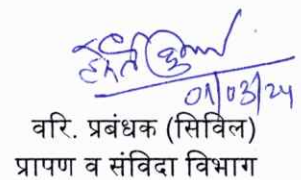 01/03/24
वरि. प्रबंधक (सिविल)
प्रापण व संविदा विभाग